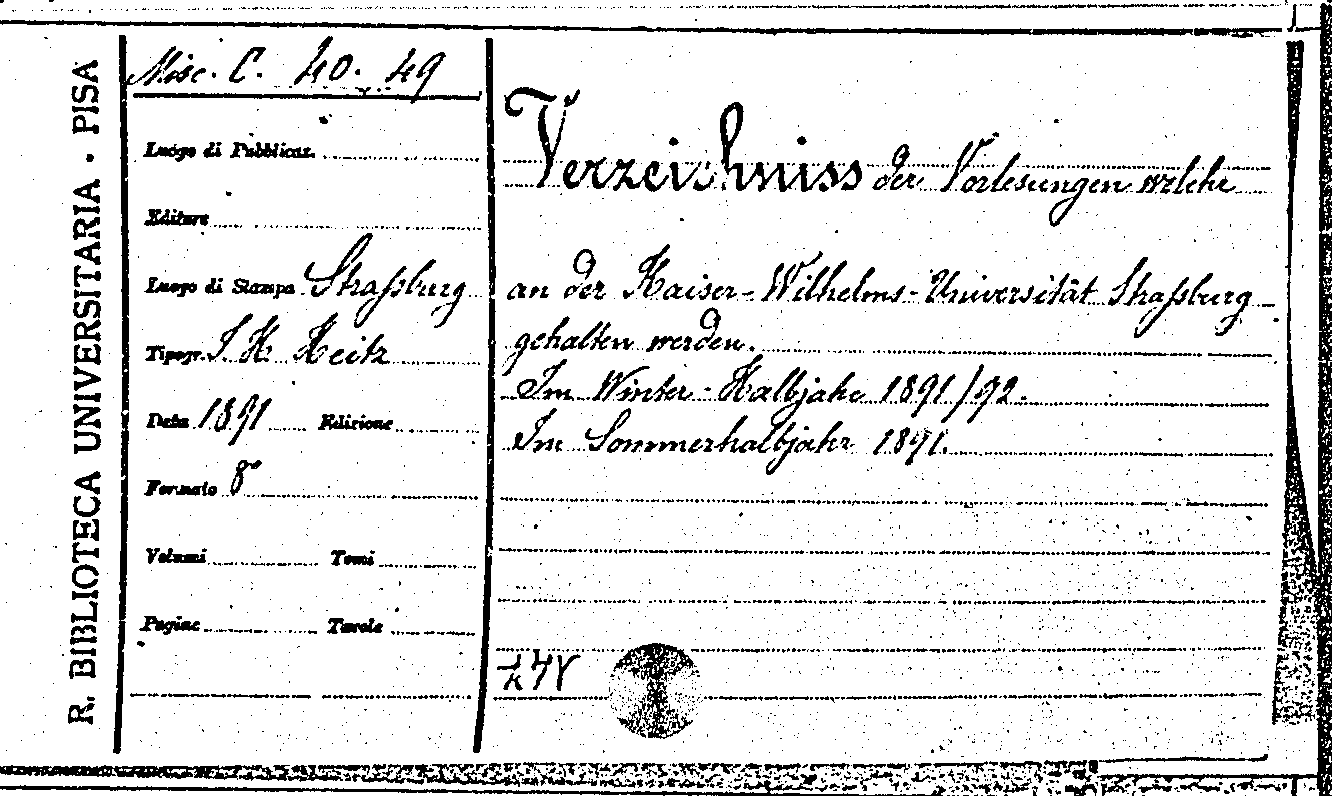 R. BIBLIOTECA UNIVERSITARIA - PISA
Misc. C. 40. 49
Luogo di Pubblicaz.
Editore
Luogo di Stampa Straßburg
Tipogr. J. H. Heitz
Data 1891 Edizione
Formato 8°
Volumi Tomi
Pagine Tavole
Verzeichniss der Vorlesungen welche
an der Kaiser-Wilhelms-Universität Straßburg
gehalten werden.
Im Winter-Halbjahr 1891/92.
Im Sommerhalbjahr 1891.